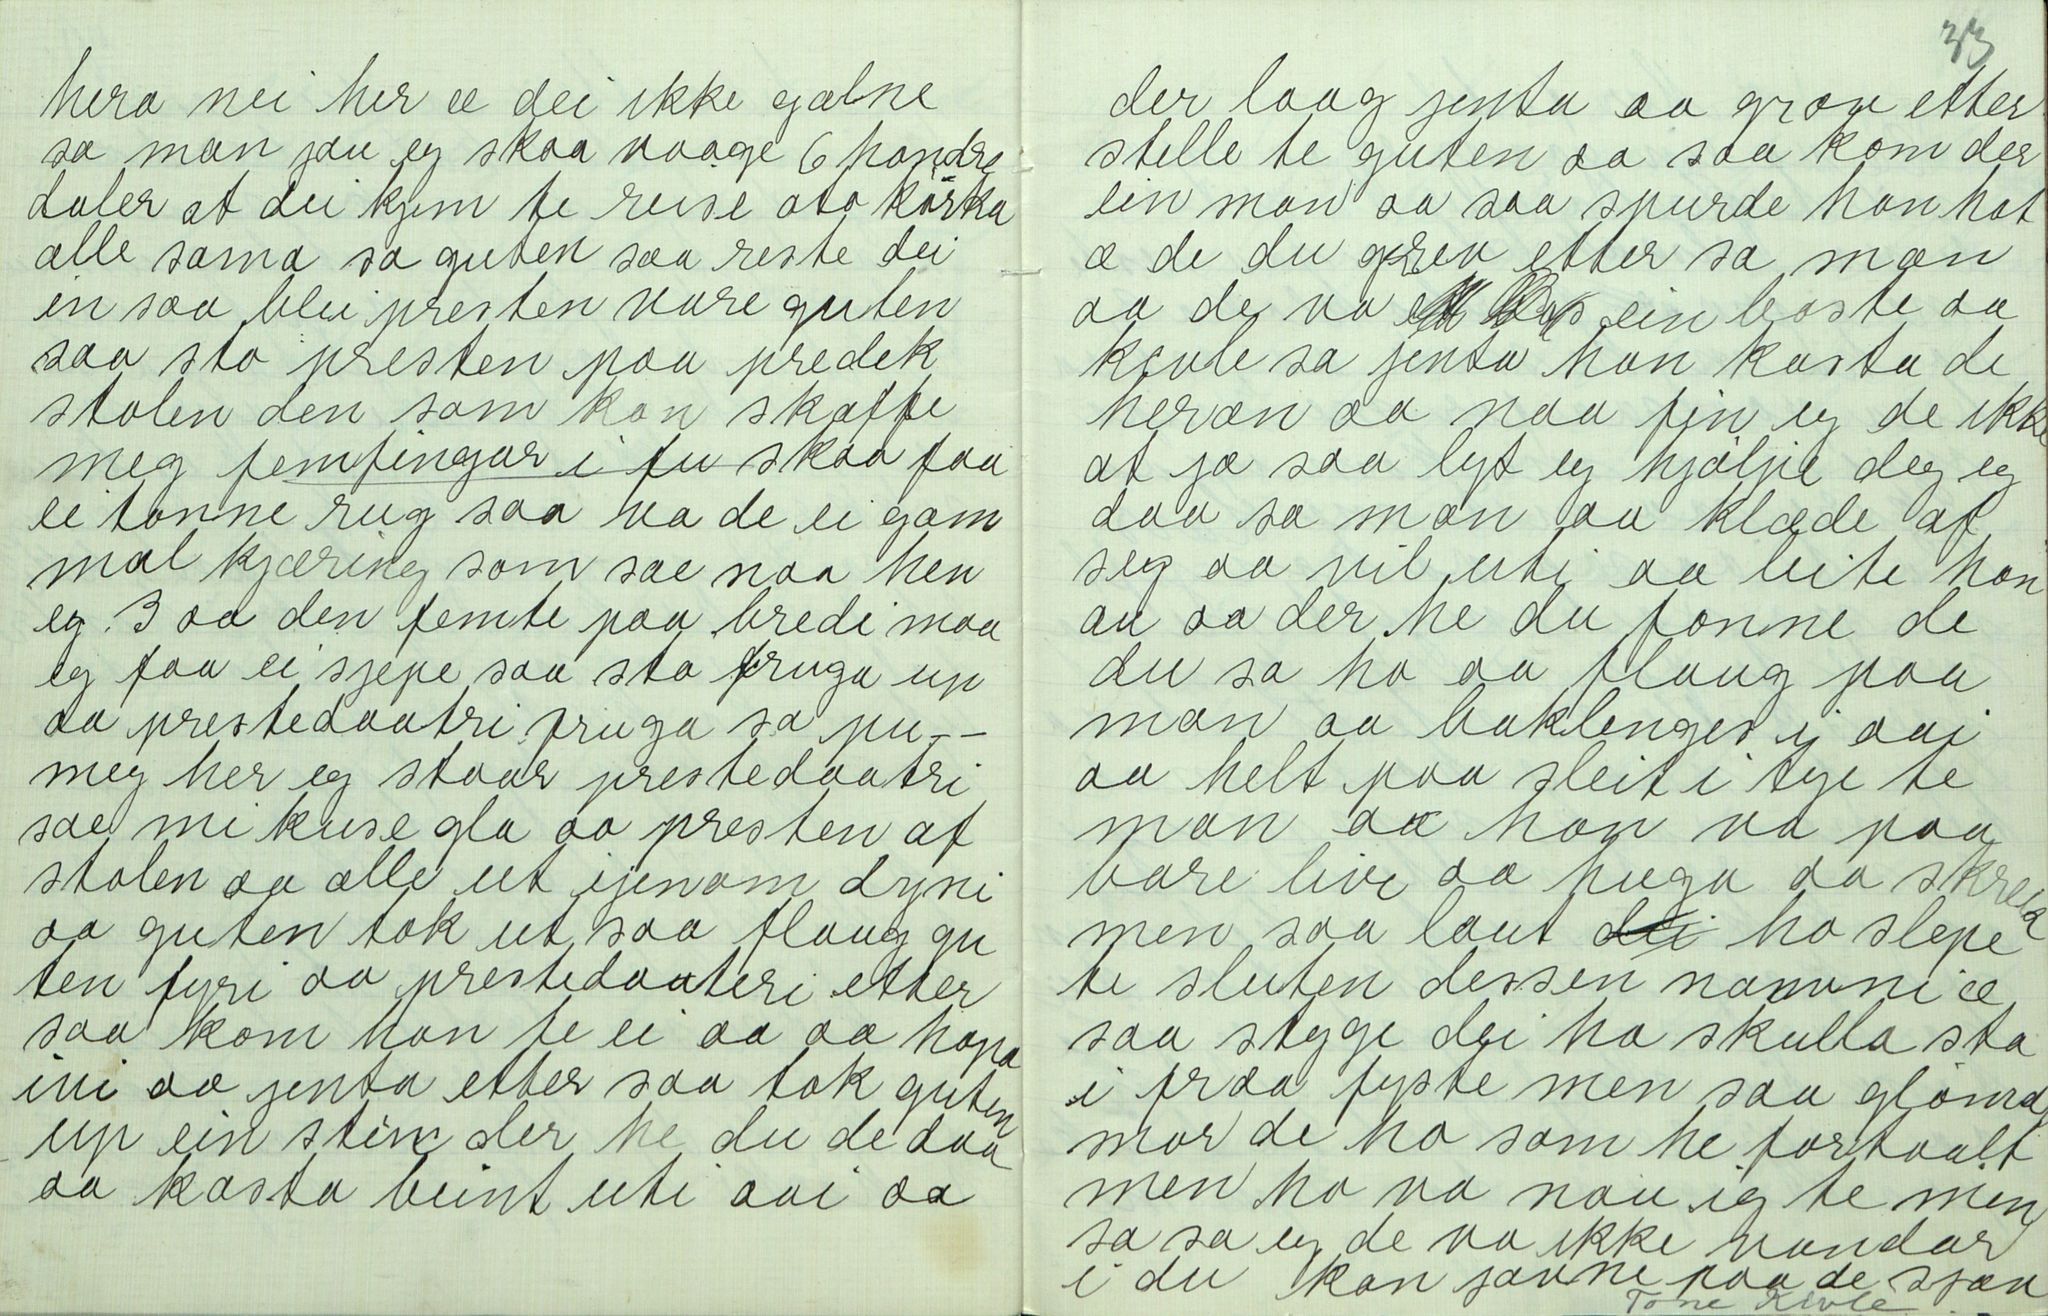 hera nei her æ dei ikke galne
sa man jau eg skaa vaage 6 hondre
daler at dei kjem te reise ato körka
alle sama sa guten saa reste dei
in saa blei presten vare guten
saa sto presten paa predek
stolen den som kan skaffe
meg femfingar i fu skaa faa
ei tonne rug saa va de ei gam
mal kjæring som sae naa hen
eg 3 aa den femte paa bredi maa
eg faa ei sjepe saa sto fruga up
aa prestedaatri fruga sa pu--
meg her eg staar prestedaatri
sae mi kuse gla aa presten af
stolen aa alle ut ijenom dyni
aa guten tok ut saa flaug gu
ten fyri aa prestedaateri etter
saa kom han te ei aa aa hopa
ini aa jenta etter saa tok guten
up ein stein der he du de daa
aa kasta beint uti aai aa
33
der laag jenta aa grov etter
stelle te guten aa saa kom der
ein man aa saa spurde han hot
æ de du grev etter sa man
aa de va ein boste aa
kevle sa jenta han kasta de
heran aa naa fin eg de ikke
at ja saa lyt eg hjälpe deg eg
daa sa man aa klæde af
seg aa vil uti aa leite han
au aa der he du fonne de
du sa ho aa flaug paa
man aa baklenges i aai
aa helt paa sleit i tye te
man aa han va paa
bare live aa huga aa skreik
men saa laut ho slepe
te sluten dessen namni æ
saa stygge dei ho skulla sta
i fraa fyste men saa glömde
mor de ho som he fortaalt
men ho va nau ig te men
sa sa eg de va ikke vandar
i du kan javne paa de sjøv
Tone Kivle